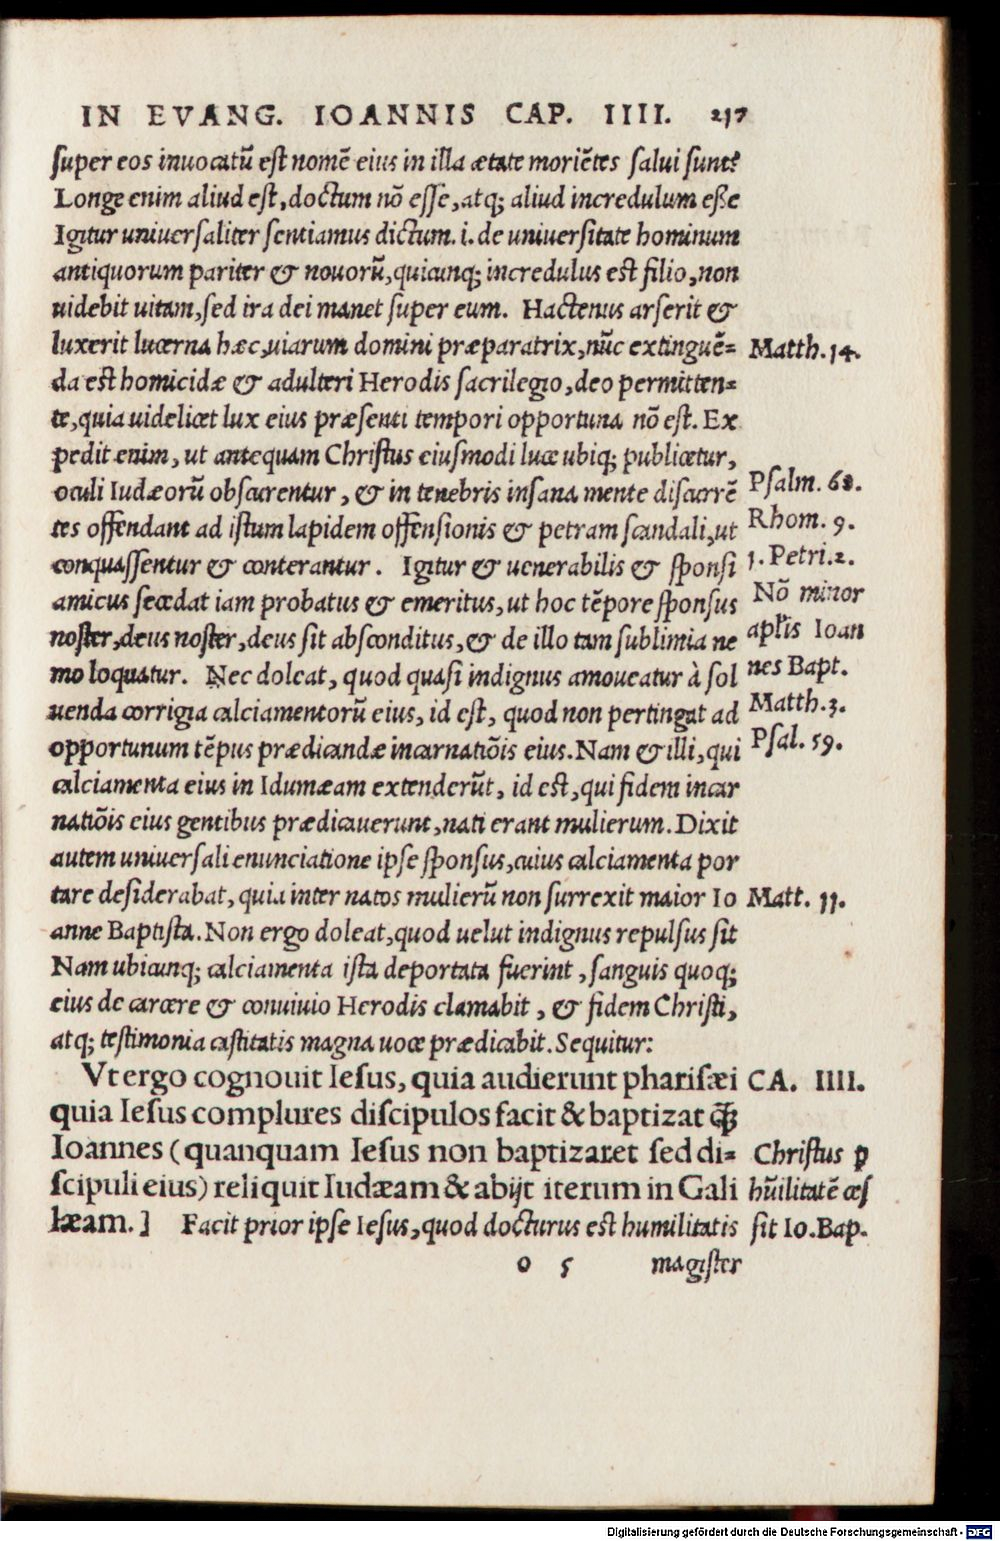 IN EVANG. IOANNIS CAP. IIII. 217
super eos inuocatū est nomē eius in illa ætate moriētes salui sunt?
Longe enim aliud est, doctum nō esse, atq; aliud incredulum eße
Igitur uniuersaliter sentiamus dictum. i. de uniuersitate hominum
antiquorum pariter & nouorū, quicunq; incredulus est filio, non
uidebit uitam, sed ira dei manet super eum. Hactenus arserit &
luxerit lucerna hæc, uiarum domini præparatrix, nūc extinguē=
Matth. 14.
da est homicidæ & adulteri Herodis sacrilegio, deo permitten=
te, quia uidelicet lux eius præsenti tempori opportuna nō est. Ex
pedit enim, ut antequam Christus eiusmodi luce ubiq; publicetur,
oculi Iudæorū obscurentur, & in tenebris insana mente discurrē
Psalm. 68.
tes offendant ad istum lapidem offensionis & petram scandali, ut
Rhom. 9.
conquassentur & conterantur. Igitur & uenerabilis & sponsi
1. Petri. 2.
amicus secedat iam probatus & emeritus, ut hoc tēpore sponsus
Nō minor
noster, deus noster, deus sit absconditus, & de illo tam sublimia ne
aplīs Ioan
mo loquatur. Nec doleat, quod quasi indignus amoueatur à sol
nes Bapt.
uenda corrigia calciamentorū eius, id est, quod non pertingat ad
Matth. 3.
opportunum tēpus prædicandæ incarnatiōis eius. Nam & illi, qui
Psal. 59.
calciamenta eius in Idumæam extenderūt, id est, qui fidem incar
natiōis eius gentibus prædicauerunt, nati erant mulierum. Dixit
autem uniuersali enunciatione ipse sponsus, cuius calciamenta por
tare desiderabat, quia inter natos mulierū non surrexit maior Io
Matt. 11.
anne Baptista. Non ergo doleat, quod uelut indignus repulsus sit
Nam ubicunq; calciamenta ista deportata fuerint, sanguis quoq;
eius de carcere & conuiuio Herodis clamabit, & fidem Christi,
atq; testimonia castitatis magna uoce prædicabit. Sequitur:
Vt ergo cognouit Iesus, quia audierunt pharisæi
CA. IIII.
quia Iesus complures discipulos facit & baptizat q̄ꝫ
Ioannes (quanquam Iesus non baptizaret sed di=
Christus ꝓ
scipuli eius) reliquit Iudæam & abijt iterum in Gali
hūilitatē cæs
læam.] Facit prior ipse Iesus, quod docturus est humilitatis
sit Io. Bap.
o 5 magister
Digitalisierung gefördert durch die Deutsche Forschungsgemeinschaft - DFG